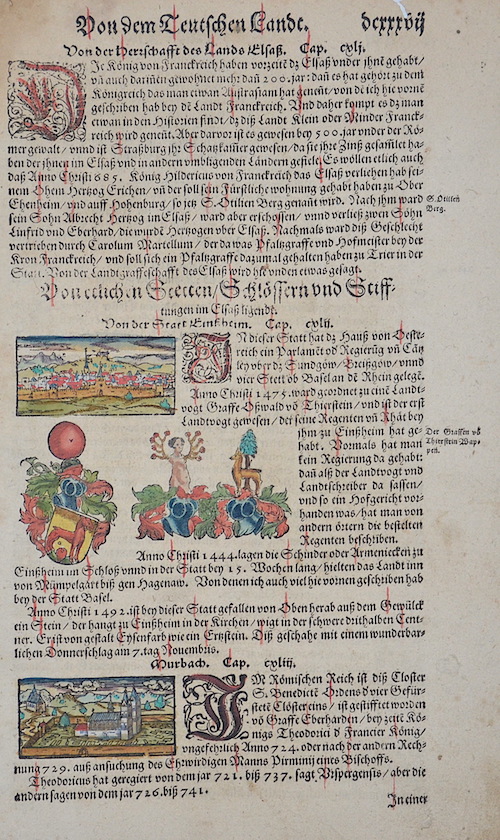 Von dem Teutschen Landt. dcxxxvij
Von der Herrschafft des Lands Elsaß. Cap. cxlj.
DIe König von Franckreich haben vorzeitē dz Elsaß vnder jhnē gehabt/
vñ auch darinnen gewohnet mehr dañ 200. jar: dañ es hat gehört zu dem
Königreich das man etwan Austrasiam hat genēnt/ von dē ich hie vornē
geschriben hab bey dē Landt Franckreich. Vnd daher kompt es dz man
etwan in den Historien findt/ dz diß Landt Klein oder Minder Franck-
reich wird genent. Aber darvor ist es gewesen bey 500. jar vnder der Rö-
mer gewalt/ vnnd ist Straßburg jhr Schatzkam̃er gewesen/ da sie ihre Zinß gesam̃let ha-
ben der jhnen im Elsaß vnd in andern vmbligenden Ländern gefiele. Es wöllen etlich auch
daß Anno Christi 685. König Hildericus von Franckreich das Elsaß verlichen hab sei-
nem Ohem Hertzog Erichen/ vñ der soll sein Fürstliche wohnung gehabt haben zu Ober
Ehenheim/ vnd auff Hohenburg/ so jetz S. Otilien Berg genañt wird. Nach jhm ward
S. Otiliē
Berg.
sein Sohn Albrecht Hertzog im Elsaß/ ward aber erschossen/ vnnd verließ zwen Söhn
Linfrid vnd Eberhard/ die wurdē Hertzogen vber Elsaß. Nachmals ward diß Geschlecht
vertrieben durch Carolum Martellum/ der da was Pfaltzgraffe vnd Hofmeister bey der
Kron Franckreich/ vnd soll sich ein Pfaltzgraffe dazumal gehalten haben zu Trier in der
Statt. Von der Landtgraffeschafft des Elsaß wird hie vnden etwas gesagt.
Von etlichen Stetten/ Schlössern vnd Stiff-
tungen im Elsaß ligendt.
Von der Statt Einßheim. Cap. cxlij.
IN dieser Statt hat dz Hauß von Oeste-
reich ein Parlamēt od Regierūg vñ Cātz
ley vber dz Sundgöw/ Breißgöw/ vnnd
vier Stett ob Basel an dē Rhein gelegē.
Anno Christi 1475. ward geordnet zu einē Landt-
vogt Graffe Oßwald vō Thierstein/ vnd ist der erst
Landtvogt gewesen/ der seine Regenten vñ Rhät bey
jhm zu Einßheim hat ge-
Der Graffen vō
Thierstein Wap-
pen.
habt. Vormals hat man
kein Regierung da gehabt:
dañ alß der Landtvogt vnd
Landtschreiber da sassen/
vnd so ein Hofgericht vor-
handen was/ hat man von
andern örtern die bestelten
Regenten beschriben.
Anno Christi 1444. lagen die Schinder oder Armeniecken zu
Einßheim im Schloß vnnd in der Statt bey 15. Wochen lang/ hielten das Landt inn
von Mümpelgart biß gen Hagenaw. Von denen ich auch viel hie vornen geschriben hab
bey der Statt Basel.
Anno Christi 1492. ist bey dieser Statt gefallen von Oben herab auß dem Gewülck
ein Stein/ der hangt zu Einßheim in der Kirchen/ wigt in der schwere dritthalben Cent-
ner. Er ist von gestalt Eysenfarb wie ein Ertzstein. Diß geschahe mit einem wunderbar-
lichen Donnerschlag am 7. tag Nouembris.
Murbach. Cap. cxliij.
IM Römischen Reich ist diß Closter
S. Benedictē Ordens d vier Gefür-
stetē Clöster eins/ ist gestifftet worden
vō Graffe Eberharden/ bey zeitē Kö-
nigs Theodorici d Francier König/
vngefehrlich Anno 724. oder nach der andern Rech-
nung 729. auß ansuchung des Ehrwirdigen Manns Pirminij eines Bischoffs.
Theodoricus hat geregiert von dem jar 721. biß 737. sagt Vrspergensis/ aber die
andern sagen von dem jar 726. biß 741.
In einer